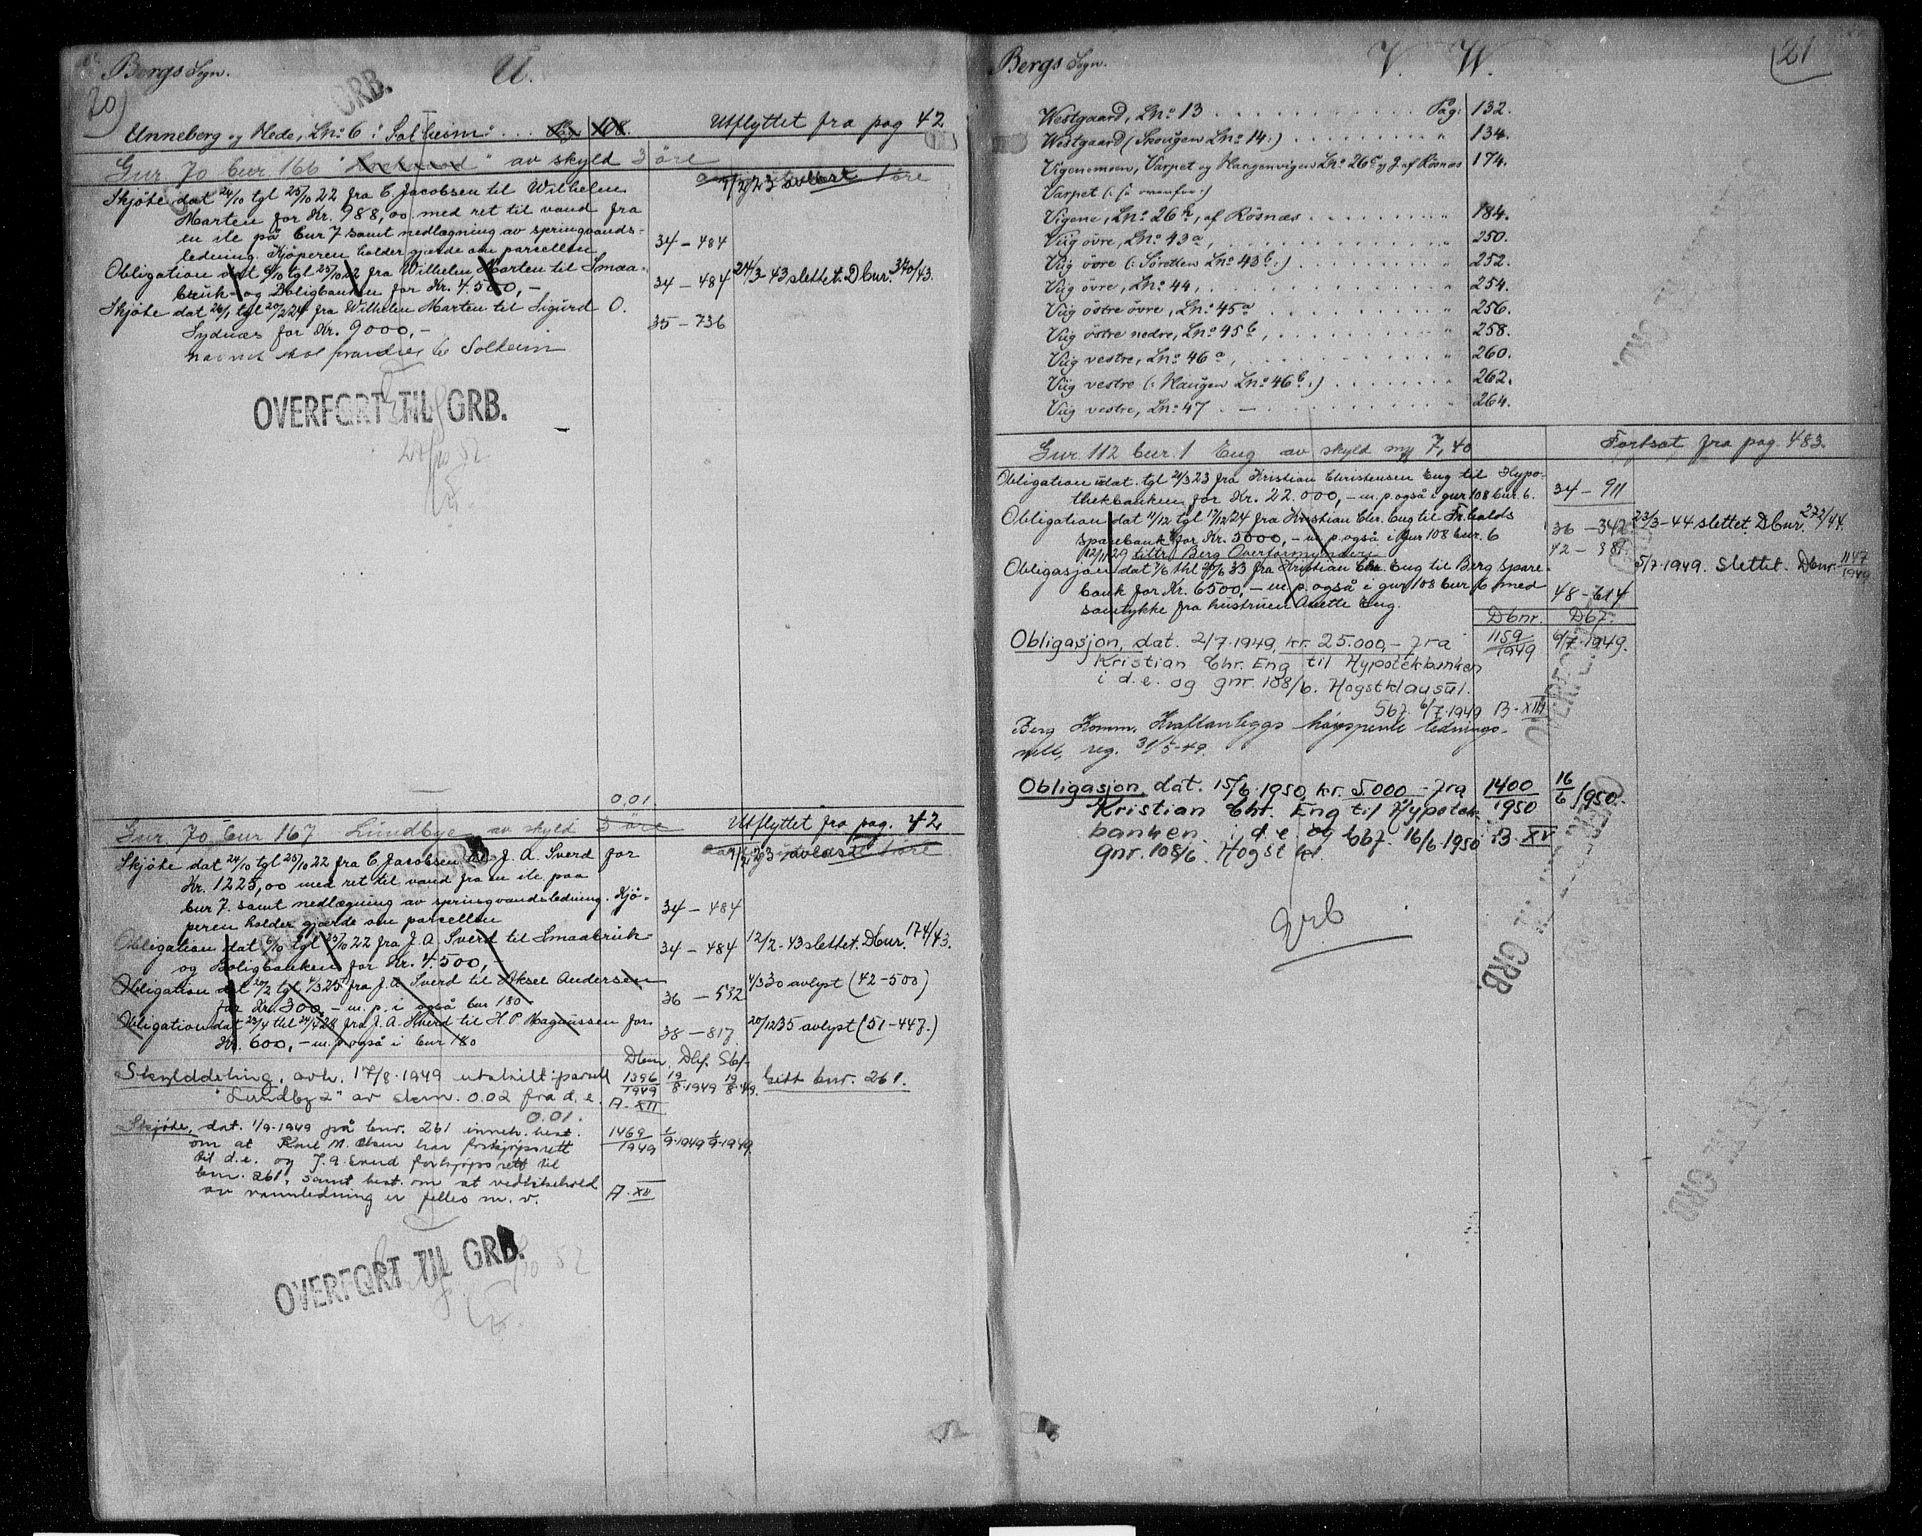 Bergs Sogn. U.
20)
Unneberg og Hede, Lno 6 : Solheim : . . . Pag 108. Utflyttet fra pag 42
Gnr. 70 bnr 166 av skyld 3 øre
Skjøte dat 24/10 tgl 25/10 22 fra C. Jacobsen til Wilhelm
Marten for Kr. 988,00 med ret til vand fra
en ile på bnr 7 samt nedlægning av springvands-
ledning. Kjøperen holder gjerde om parcellen 34 - 484
Obligation dat 6/10 tgl 25/10 22 fra Wilhelm Marten til Smaa-
bruk- og Boligbanken for Kr. 4500,- 34 - 484 24/3-43 slettet. Dbnr. 340/43.
Skjøte dat 26/1 tgl 20/2 24 fra Wilhelm Marten til Sigurd O.
Sydnæs for Kr. 9000,- 35 - 736
navnet skal forandres til Solheim
OVERFØRT TIL GRB.
0,01.
Gnr. 70 bnr 167 Lundbye av skyld 3 øre Utflyttet fra pag. 42
Skjøte dat 24/10 tgl 25/10 22 fra C. Jacobsen til J. A. Sverd for
Kr. 1225,00 med ret til vand fra en ile paa
bnr 7. samt nedlægning av springvandsledning. Kjø-
peren holder gjærde om parcellen 34 - 484
Obligation dat 6/10 tgl 25/10 22 fra J. A. Sverd til Smaabruk-
og Boligbanken for Kr. 4.500,- 34 - 484 12/2-43 slettet. Dbnr. 174/43.
Obligation dat 20/2 tgl 4/3 25 fra J. A. Sverd til Aksel Andersen
for Kr. 300,- m. p. i også bnr 180 36 - 532 4/3 30 avlyst (42-500)
Obligation dat 23/4 thl 24/4 28 fra J. A. Sverd til H. P. Magnussen for
Kr. 600,- m. p. også i bnr 180 38 - 817 20/12 35 avlyst (51-447.)
Dbnr. Dbf. Sbf.
Skylddeling, avh. 17/8.1949 utskilt: parsell 1396/1949 19/8.1949 19/8.49. Gitt bnr. 261.
"Lundby 2" av skm. 0.02 fra d. e. A. XII
0.01.
Skjøte, dat. 1/9-1949 på bnr. 261 inneh. best. 1469/1949 1/9.1949 1/9.1949.
om at Karl M. Olsen har forkjøpsrett
til d.e. og J. A. Sverd forkjøpsrett til
bnr. 261, samt best. om at vedlikehold
av vannledning er felles m. v. A. XII
OVERFØRT TIL GRB.
Bergs Sogn. V. W. 21
Westgaard, Lno 13 . . . Pag. 132.
Westgaard (Skougen Lno 14.) . . . " 134.
Vigenemoen, Varpet og Haugenvigen Lno 26c og f af Rösnæs 174.
Varpet (: se ovenfor :)
Vigene, Lno 26b, af Rösnæs . . . " 184.
Viig övre, Lno 43a, . . . " 250.
Viig övre (: Sörotten Lno 43b :) . . . " 252.
Viig övre, Lno 44, . . . " 254.
Viig östre övre, Lno 45a . . . " 256.
Viig östre nedre, Lno 45b, . . . " 258.
Viig vestre, Lno 46a, . . . " 260.
Viig vestre (: Haugen Lno 46b :) . . . " 262.
Viig vestre, Lno 47 . . . " 264.
Gnr. 112 bnr. 1 Eng av skyld my 7,40 Fortsat fra pag. 483.
Obligation udat. tgl 2/3 23 fra Kristian Christensen Eng til Hypo-
thekbanken for Kr. 22.000,- m. p. også i gnr 108 bnr. 6. 34 - 911
Obligation dat 11/12 tgl 17/12 24 fra Kristian Chr. Eng til Fr.halds
sparebank for Kr. 5000,- m. p. også i gnr 108 bnr. 6 36 - 342 23/3-44 slettet. Dbnr. 272/44.
12/11 29 tiltr. Berg Overformynderi 42 - 38
Obligasjon dat 7/6 thl 10/6 33 fra Kristian Chr. Eng til Berg spare- 5/7-1949. Slettet. Dbnr. 1147/1949
bank for Kr. 6500,- m. p. også i gnr 108 bnr 6 med 48 - 614
samtykke fra hustruen Anette Eng.
Dbnr. Dbf.
Obligasjon, dat. 2/7.1949, kr. 25.000,- fra 1159/1949 6/7.1949.
Kristian Chr. Eng til Hypotekbanken
i d.e. og gnr. 108/6. Hogstklausul.
Sbf. 6/7.1949 B. XIII
Berg Komm. Kraftanleggs høyspente lednings-
nett, reg. 31/5-49
Obligasjon dat. 15/6.1950, kr. 5.000 - fra 1400/1950 16/6 1950.
Kristian Chr. Eng til Hypotek-
banken i d. e. og Sbf. 16/6.1950 B. XV
gnr. 108/6. Hogst kl.
Grb
OVERFØRT TIL GRB.